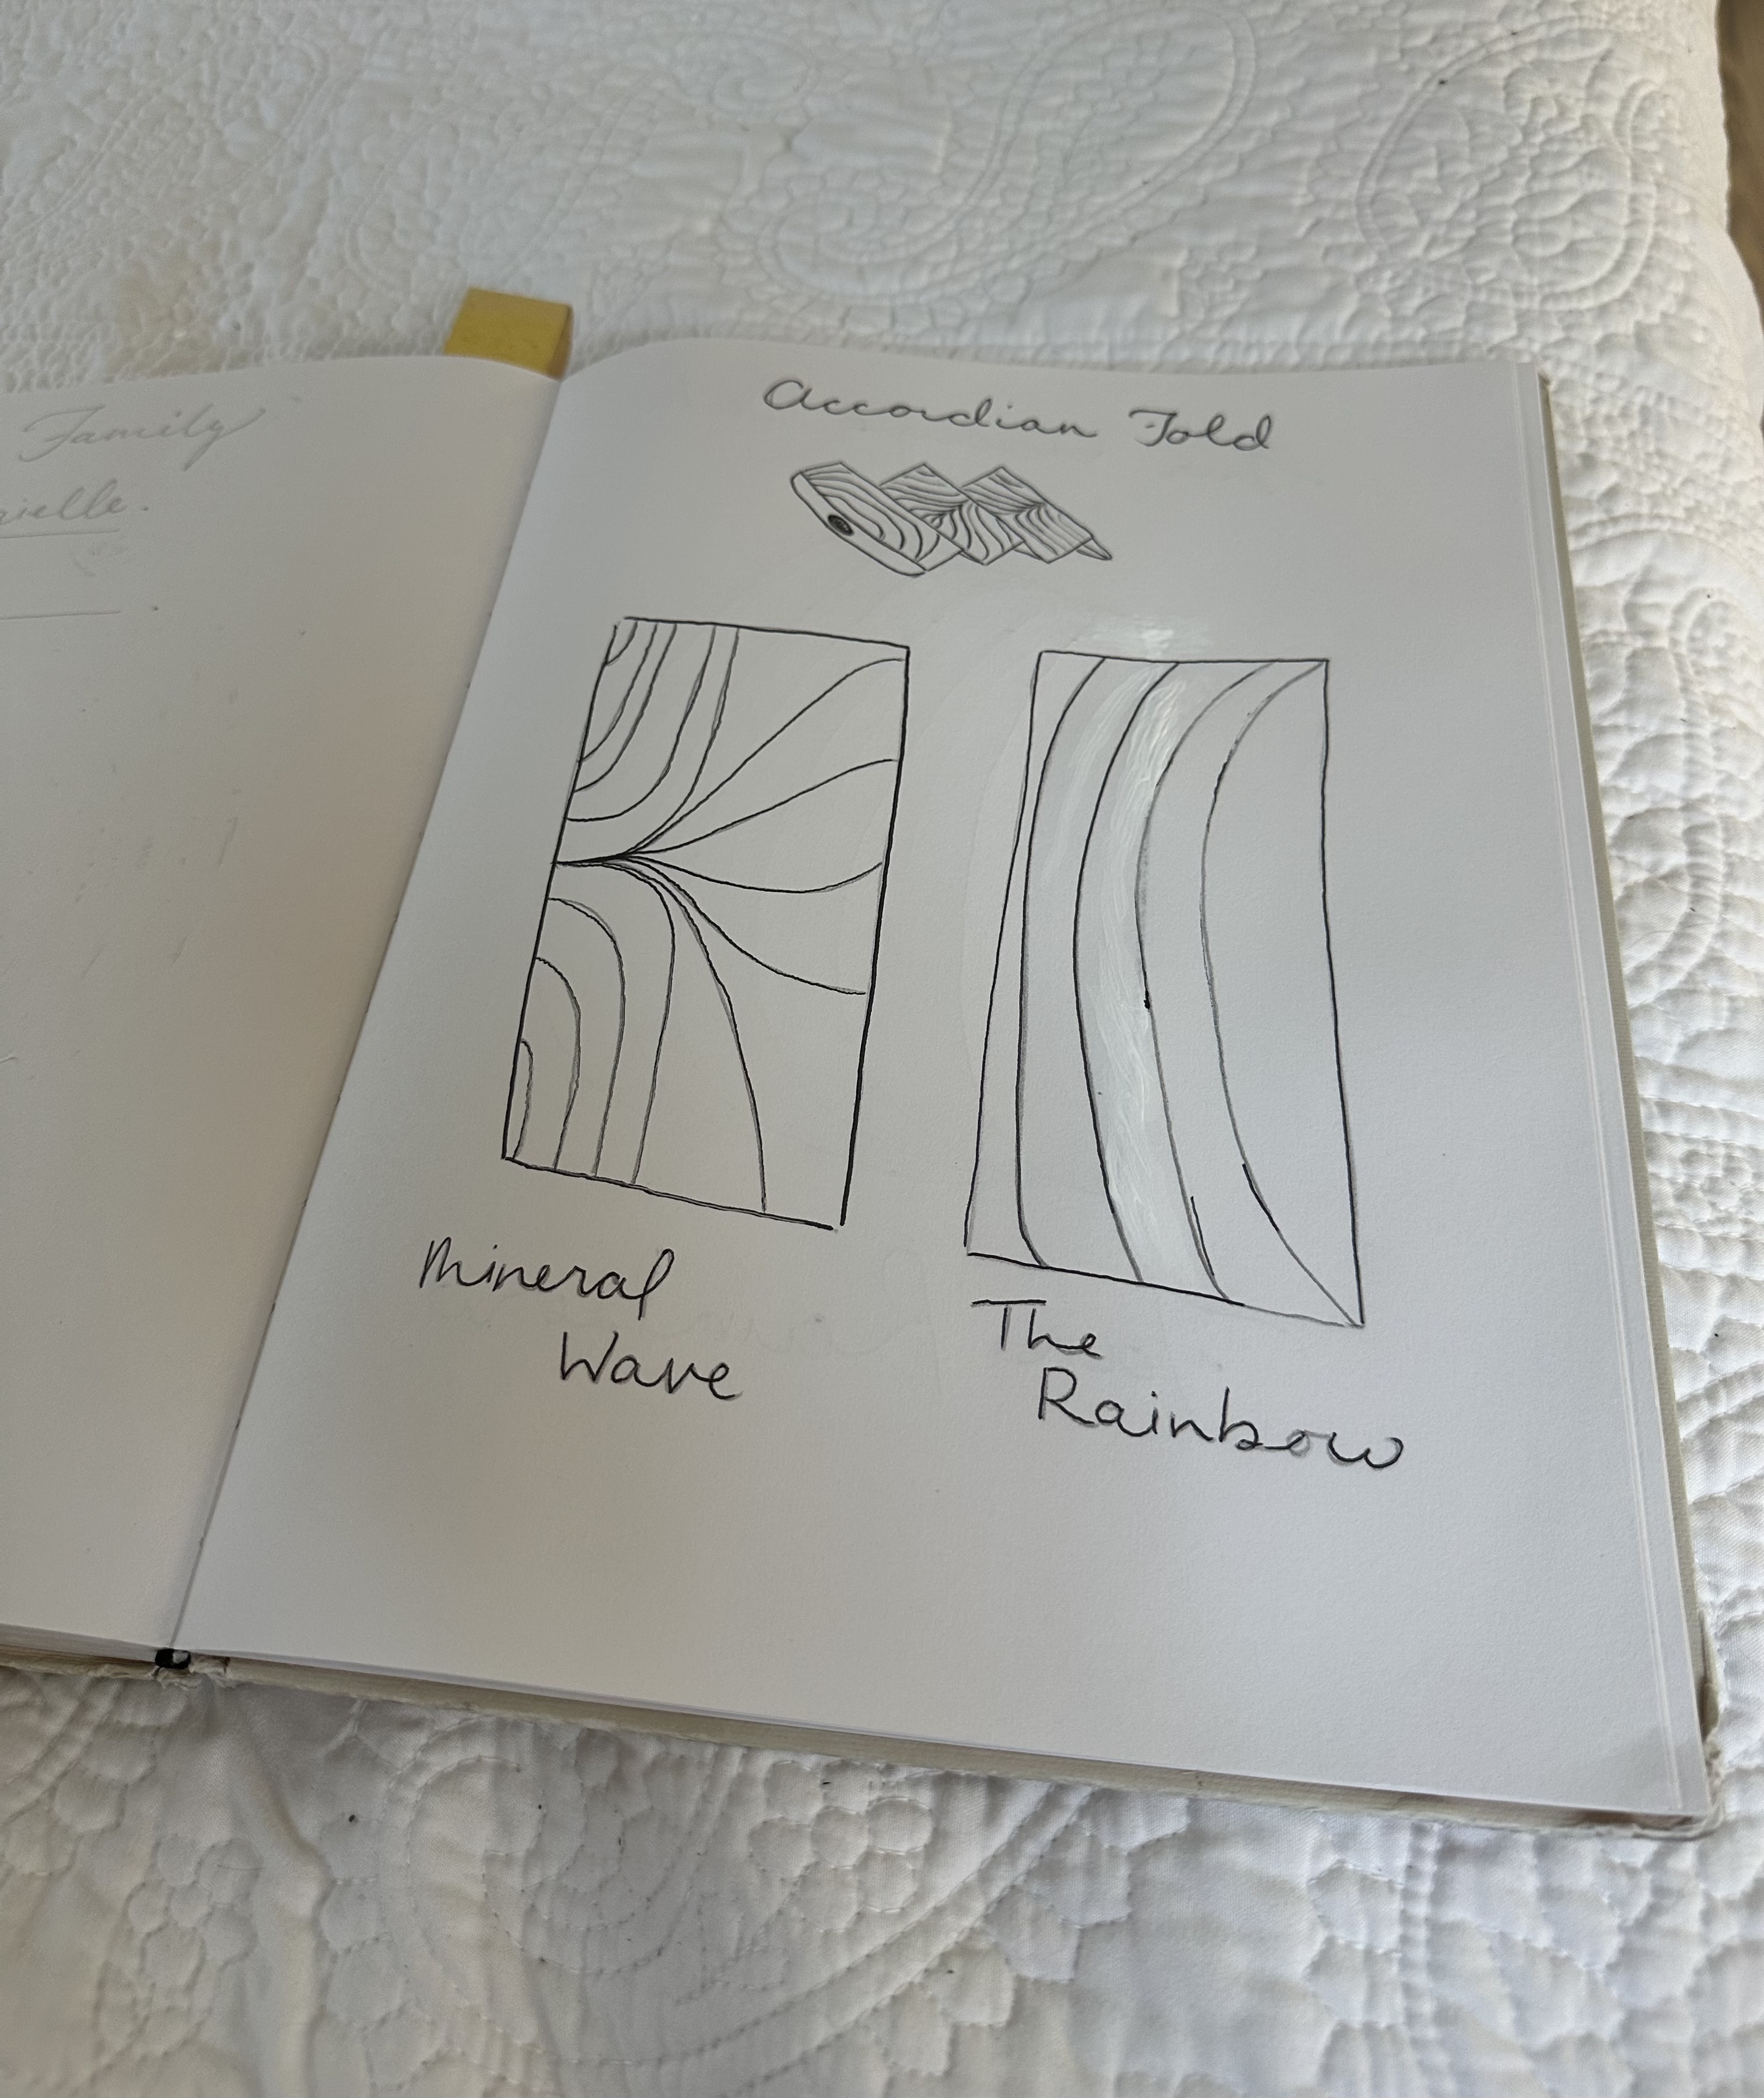 Family
Accordian Fold
Mineral
Wave
The
Rainbow